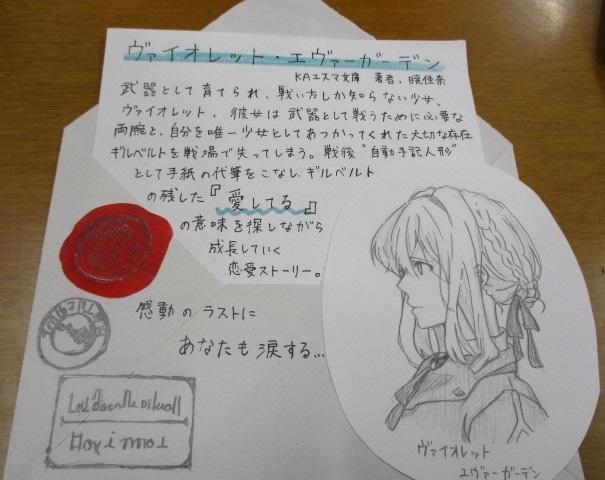 ヴァイオレット・エヴァーガーデン
KAエスマ文庫 著者、暁佳奈
武器として育てられ、戦い方しか知らない少女、
ヴァイオレット。彼女は武器として戦うために必要な
両腕と、自分を唯一少女としてあつかってくれた大切な存在
ギルベルトを戦場で失ってしまう。戦後"自動手記人形"
として手紙の代筆をこなし、ギルベルト
の残した『愛してる』
の意味を探しながら
成長していく
恋愛ストーリー。
感動のラストに
あなたも涙する…
ヴァイオレット
エヴァーガーデン